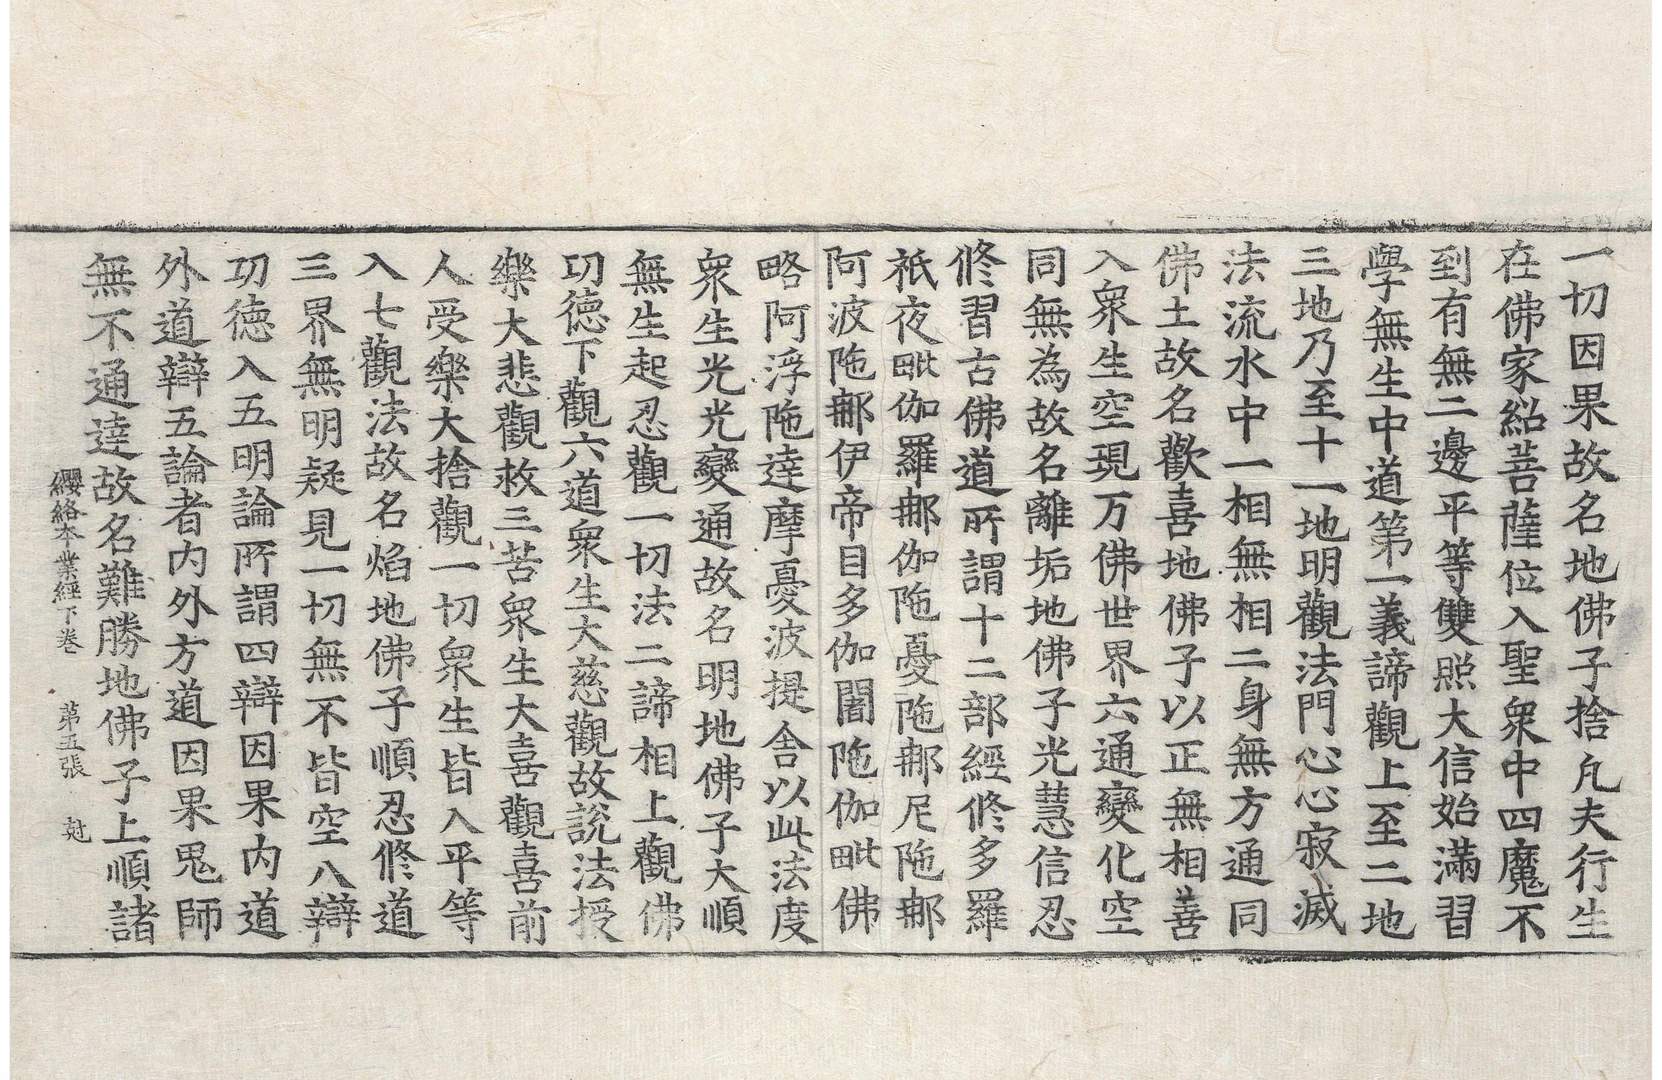 一切因果故名地佛子捨凡夫行生
在佛家紹菩薩位入聖衆中四魔不
到有無二邊平等雙照大信始滿習
學無生中道第一義諦觀上至二地
三地乃至十一地明觀法門心心寂滅
法流水中一相無相二身無方通同
佛土故名歡喜地佛子以正無相善
入衆生空現万佛世界六通變化空
同無為故名離垢地佛子光慧信忍
修習古佛道所謂十二部經修多羅
祇夜毗伽羅那伽陁憂陁那尼陁那
阿波陁那伊帝目多伽闍陁伽毗佛
略阿浮陁達摩憂波提舍以此法度
衆生光光變通故名明地佛子大順
無生起忍觀一切法二諦相上觀佛
功德下觀六道衆生大慈觀故說法授
樂大悲觀救三苦衆生大喜觀喜前
人受樂大捨觀一切衆生皆入平等
入七觀法故名焰地佛子順忍修道
三界無明疑見一切無不皆空八辯
功德入五明論所謂四辯因果內道
外道辯五論者內外方道因果鬼師
無不通達故名難勝地佛子上順諸
纓絡本業經下卷 第五張 尅